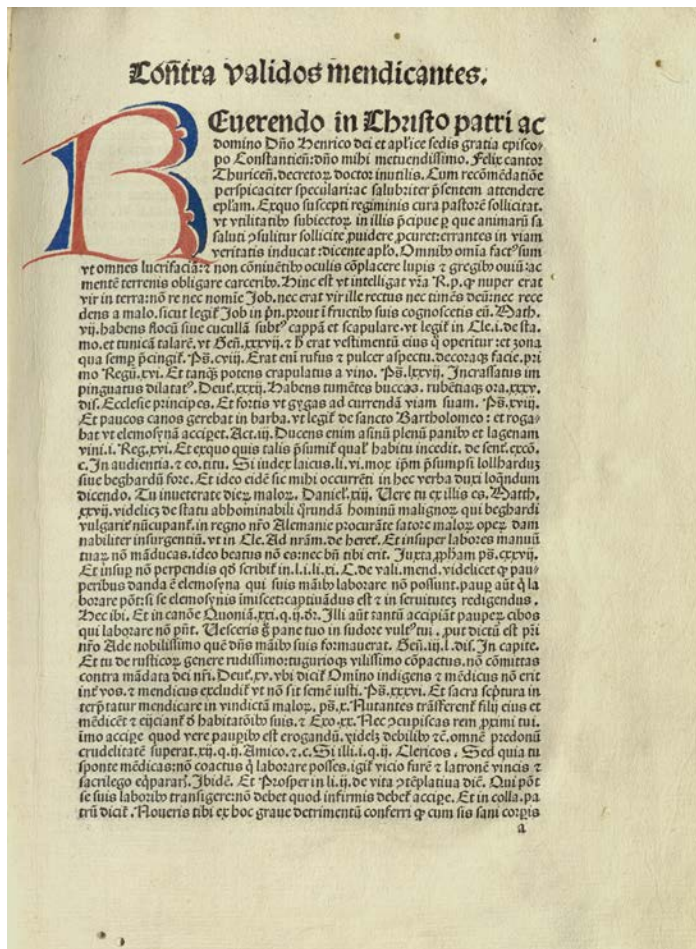 Cōn̄tra validos mendicantes.
REuerendo in Christo patri ac
domino Dn̄o Henrico dei et apl'ice sedis gratia episco-
po Constancien̄: dn̄o mihi metuendissimo. Felix cantor
Thuricen̄. decretoꝝ doctor inutilis. Cum recōmēdatiōe
perspicaciter speculari: ac salubriter p̄sentem attendere
ep̄lam. Exquo suscepti regiminis cura pastorē sollicitat.
vt vtilitatibꝰ subiectoꝝ in illis p̄cipue ꝑ que animarū sa
saluti ꝯsulitur sollicite ꝓuidere ꝓcuret: errantes in viam
veritatis inducat: dicente apl'o. Omnibꝰ om̄ia factꝰ sum
vt omnes lucrifaciā: ⁊ non cōniuētibꝰ oculis cōplacere lupis ⁊ gregibꝰ ouiū: ac
mentē terrenis obligare carceribꝰ. Hinc est vt intelligat vr̄a R. p. ꝙ nuper erat
vir in terra: nō re nec nomīe Job. nec erat vir ille rectus nec timēs deū: nec rece
dens a malo. sicut legit̄ Job in pn̄. prout ī fructibꝰ suis cognoscetis eū. Math.
vij. habens flocū siue cucullā subtꝰ cappā et scapulare. vt legit̄ in Cle. i. de sta.
mo. et tunicā talarē. vt Gen̄. xxxvij. ⁊ h̄ erat vestimentū eius q̄ operitur: et zona
qua semꝑ p̄cingit̄. Ps̄. cviij. Erat eni rufus ⁊ pulcer aspectu. decoraqꝫ facie. pri
mo Regū. xvi. Et tanqꝫ potens crapulatus a vino. Ps̄. lxxvij. Incrassatus im
pinguatus dilatatꝰ. Deut̄. xxxij. Habens tumētes buccas. rubētiaqꝫ ora. xxxv.
dis. Ecclesie principes. Et fortis vt gygas ad currendā viam suam. Ps̄. xviij.
Et paucos canos gerebat in barba. vt legit̄ de sancto Bartholomeo: et roga-
bat vt elemosynā acciꝑet. Act. iij. Ducens enim asinū plenū panibꝰ et lagenam
vini. i. Reg. xvi. Et exquo quis talis p̄sumit̄ qual' habitu incedit. de sent̄. excō.
c. In audientia. ⁊ eo. titu. Si iudex laicus. li. vi. mox ip̄m p̄sumpsi lollharduꝫ
siue beghardū fore. Et ideo eidē sic mihi occurrēti in hec verba duxi loqn̄dum
dicendo. Tu inueterate dieꝝ maloꝝ. Daniel'. xiij. Uere tu ex illis es. Matth.
xxvij. videlicꝫ de statu abhominabili q̄rundā hominū malignoꝝ qui beghardi
vulgarit̄ nūcupant̄. in regno nr̄o Alemanie procurāte satore maloꝝ opeꝝ dam
nabiliter insurgentiū. vt in Cle. Ad nr̄am. de heret̄. Et insuper labores manuū
tuaꝝ nō māducas. ideo beatus nō es: nec bn̄ tibi erit. Juxta ꝓpham ps̄. cxxvij.
Et insuꝑ nō perpendis qd̄ scribit̄ in. l. i. li. xi. C. de vali. mend. videlicet ꝙ pau-
peribus danda ē elemosyna qui suis māibꝰ laborare nō possunt. pauꝑ aūt q̄ la
borare pōt: si se elemosynis īmiscet: captiuādus est ⁊ in seruitutēꝫ redigendus.
Hec ibi. Et in canōe Quoniā. xxi. q. ij. d̄r. Illi aūt tantū accipiāt pauꝑes cibos
qui laborare nō pn̄t. Uesceris ḡ pane tuo in sudore vultꝰ tui, put dictū est pri
nr̄o Ade nobilissimo quē dn̄s māibꝰ suis formauerat. Gen̄. iij. l. dis. In capite.
Et tu de rusticoꝝ genere rudissimo: tugurioqꝫ vilissimo cōpactus. nō cōmittas
contra mādata dei nr̄i. Deut̄. xv. vbi dicit̄ Omino indigens ⁊ mēdicus nō erit
int̄ vos. ⁊ mendicus excludit̄ vt nō sit semē iusti. Ps̄. xxxvi. Et sacra sc̄ptura in
terp̄tatur mendicare in vindictā maloꝝ. ps̄. x. Nutantes trāsferent̄ filij eius et
mēdicēt ⁊ eijciant̄ d̄ habitatōibꝰ suis. ⁊ Exo. xx. Nec ꝯcupiscas rem ꝓximi tui.
imo accipe quod vere pauꝑibꝰ est erogandū. videlꝫ debilibꝰ ⁊c̄. omnē predonū
crudelitatē superat. xij. q. ij. Amico. ⁊. c. Si illi. i. q. ij. Clericos. Sed quia tu
sponte mēdicas: nō coactus q̄ laborare posses. igit̄ vicio furē ⁊ latronē vincis ⁊
sacrilego eq̄parar̄. Ibidē. Et Prosper in li. ij. de vita ꝯtēplatiua diē. Qui pōt
se suis laboribꝰ transigere: nō debet quod infirmis debet̄ acciꝑe. Et in colla. pa
trū dicit̄. Noueris tibi ex hoc graue detrimentū conferri ꝙ cum sis sani corꝑis
a